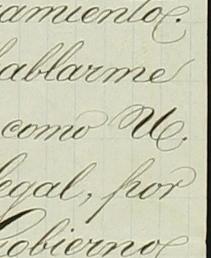 amiento.
hablarme
como U.
legal, por
Gobierno